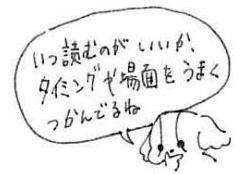 いつ読むのがいいか、
タイミングや場面をうまく
つかんでるね